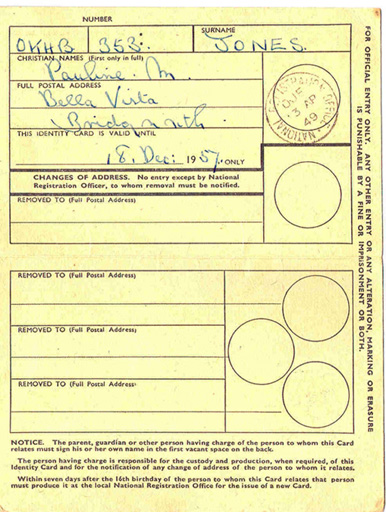 NUMBER SURNAME
OKHB 353: JONES.
CHRISTIAN NAMES (First only in full)
Pauline. M.
FULL POSTAL ADDRESS
Bella Vista
Bridgnorth.
THIS IDENTITY CARD IS VALID UNTIL
18. Dec: 1957. ONLY
CHANGES OF ADDRESS. No entry except by National
Registration Officer, to whom removal must be notified.
REMOVED TO (Full Postal Address)
REMOVED TO (Full Postal Address)
REMOVED TO (Full Postal Address)
REMOVED TO (Full Postal Address)
NOTICE. The parent, guardian or other person having charge of the person to whom this Card
relates must sign his or her own name in the first vacant space on the back.
The person having charge is responsible for the custody and production, when required, of this
Identity Card and for the notification of any change of address of the person to whom it relates.
Within seven days after the 16th birthday of the person to whom this Card relates that person
must produce it at the local National Registration Office for the issue of a new Card.
FOR OFFICIAL ENTRY ONLY. ANY OTHER ENTRY OR ANY ALTERATION, MARKING OR ERASURE
IS PUNISHABLE BY A FINE OR IMPRISONMENT OR BOTH.
NATIONAL REGISTRATION OFFICE
3 AP
49